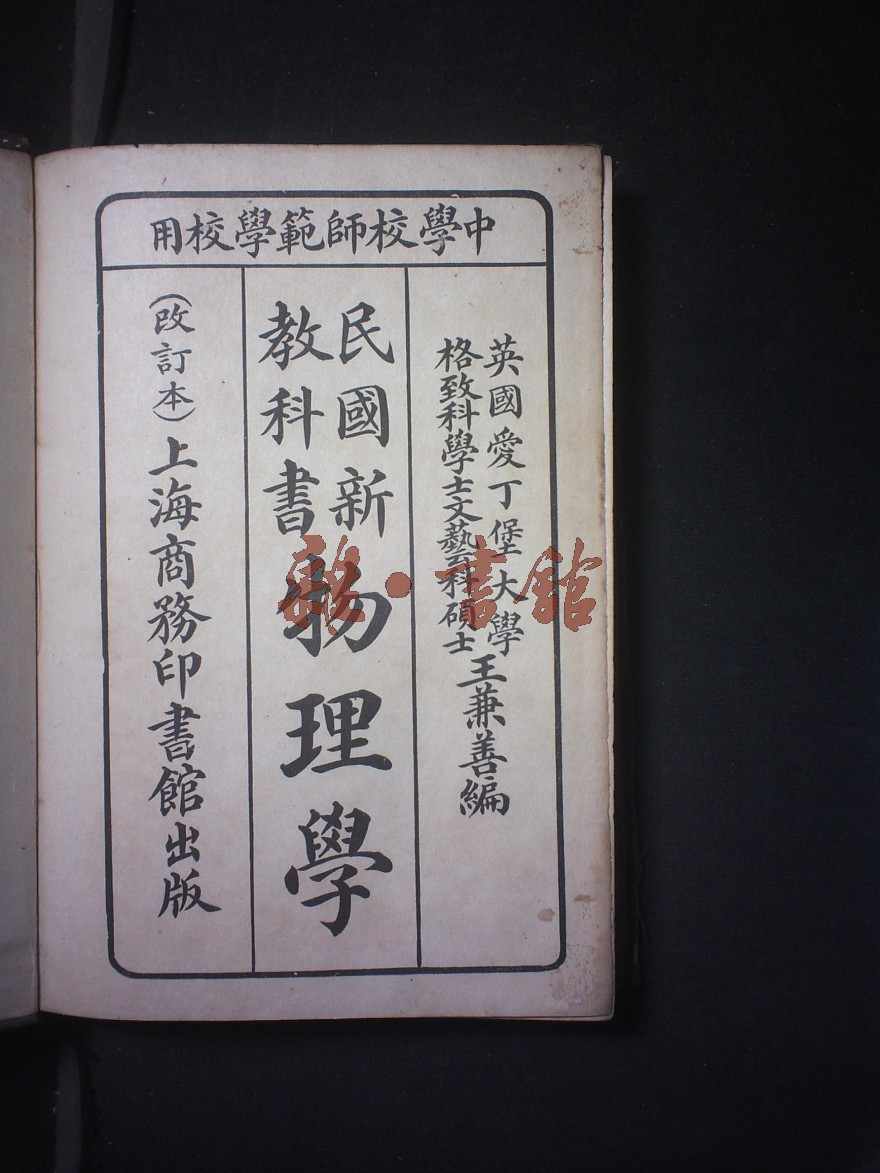 中學校師範學校用
英國愛丁堡大學
格致科學士文藝科碩士
王兼善編
民國新
教科書
物理學
(改訂本)上海商務印書館出版
書館